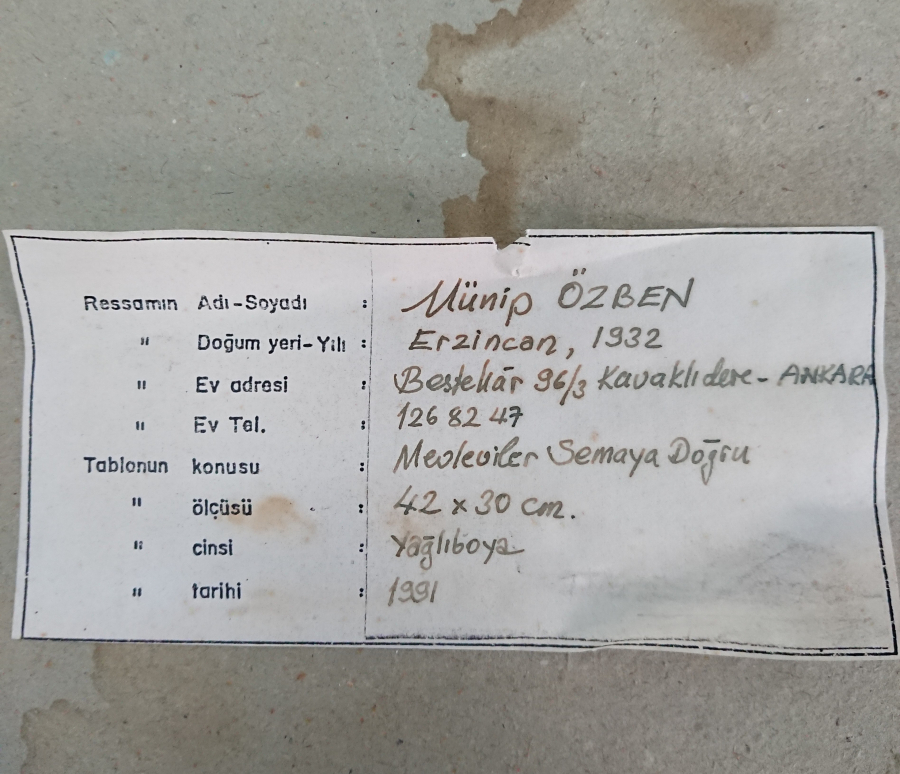 Ressamın Adı-Soyadı : Münip ÖZBEN
" Doğum yeri-Yılı : Erzincan, 1932
" Ev adresi : Bestekâr 96/3 Kavaklıdere - ANKARA
" Ev Tel. : 126 82 47
Tablonun konusu : Mevleviler Semaya Doğru
" ölçüsü : 42 x 30 cm.
" cinsi : Yağlıboya
" tarihi : 1991